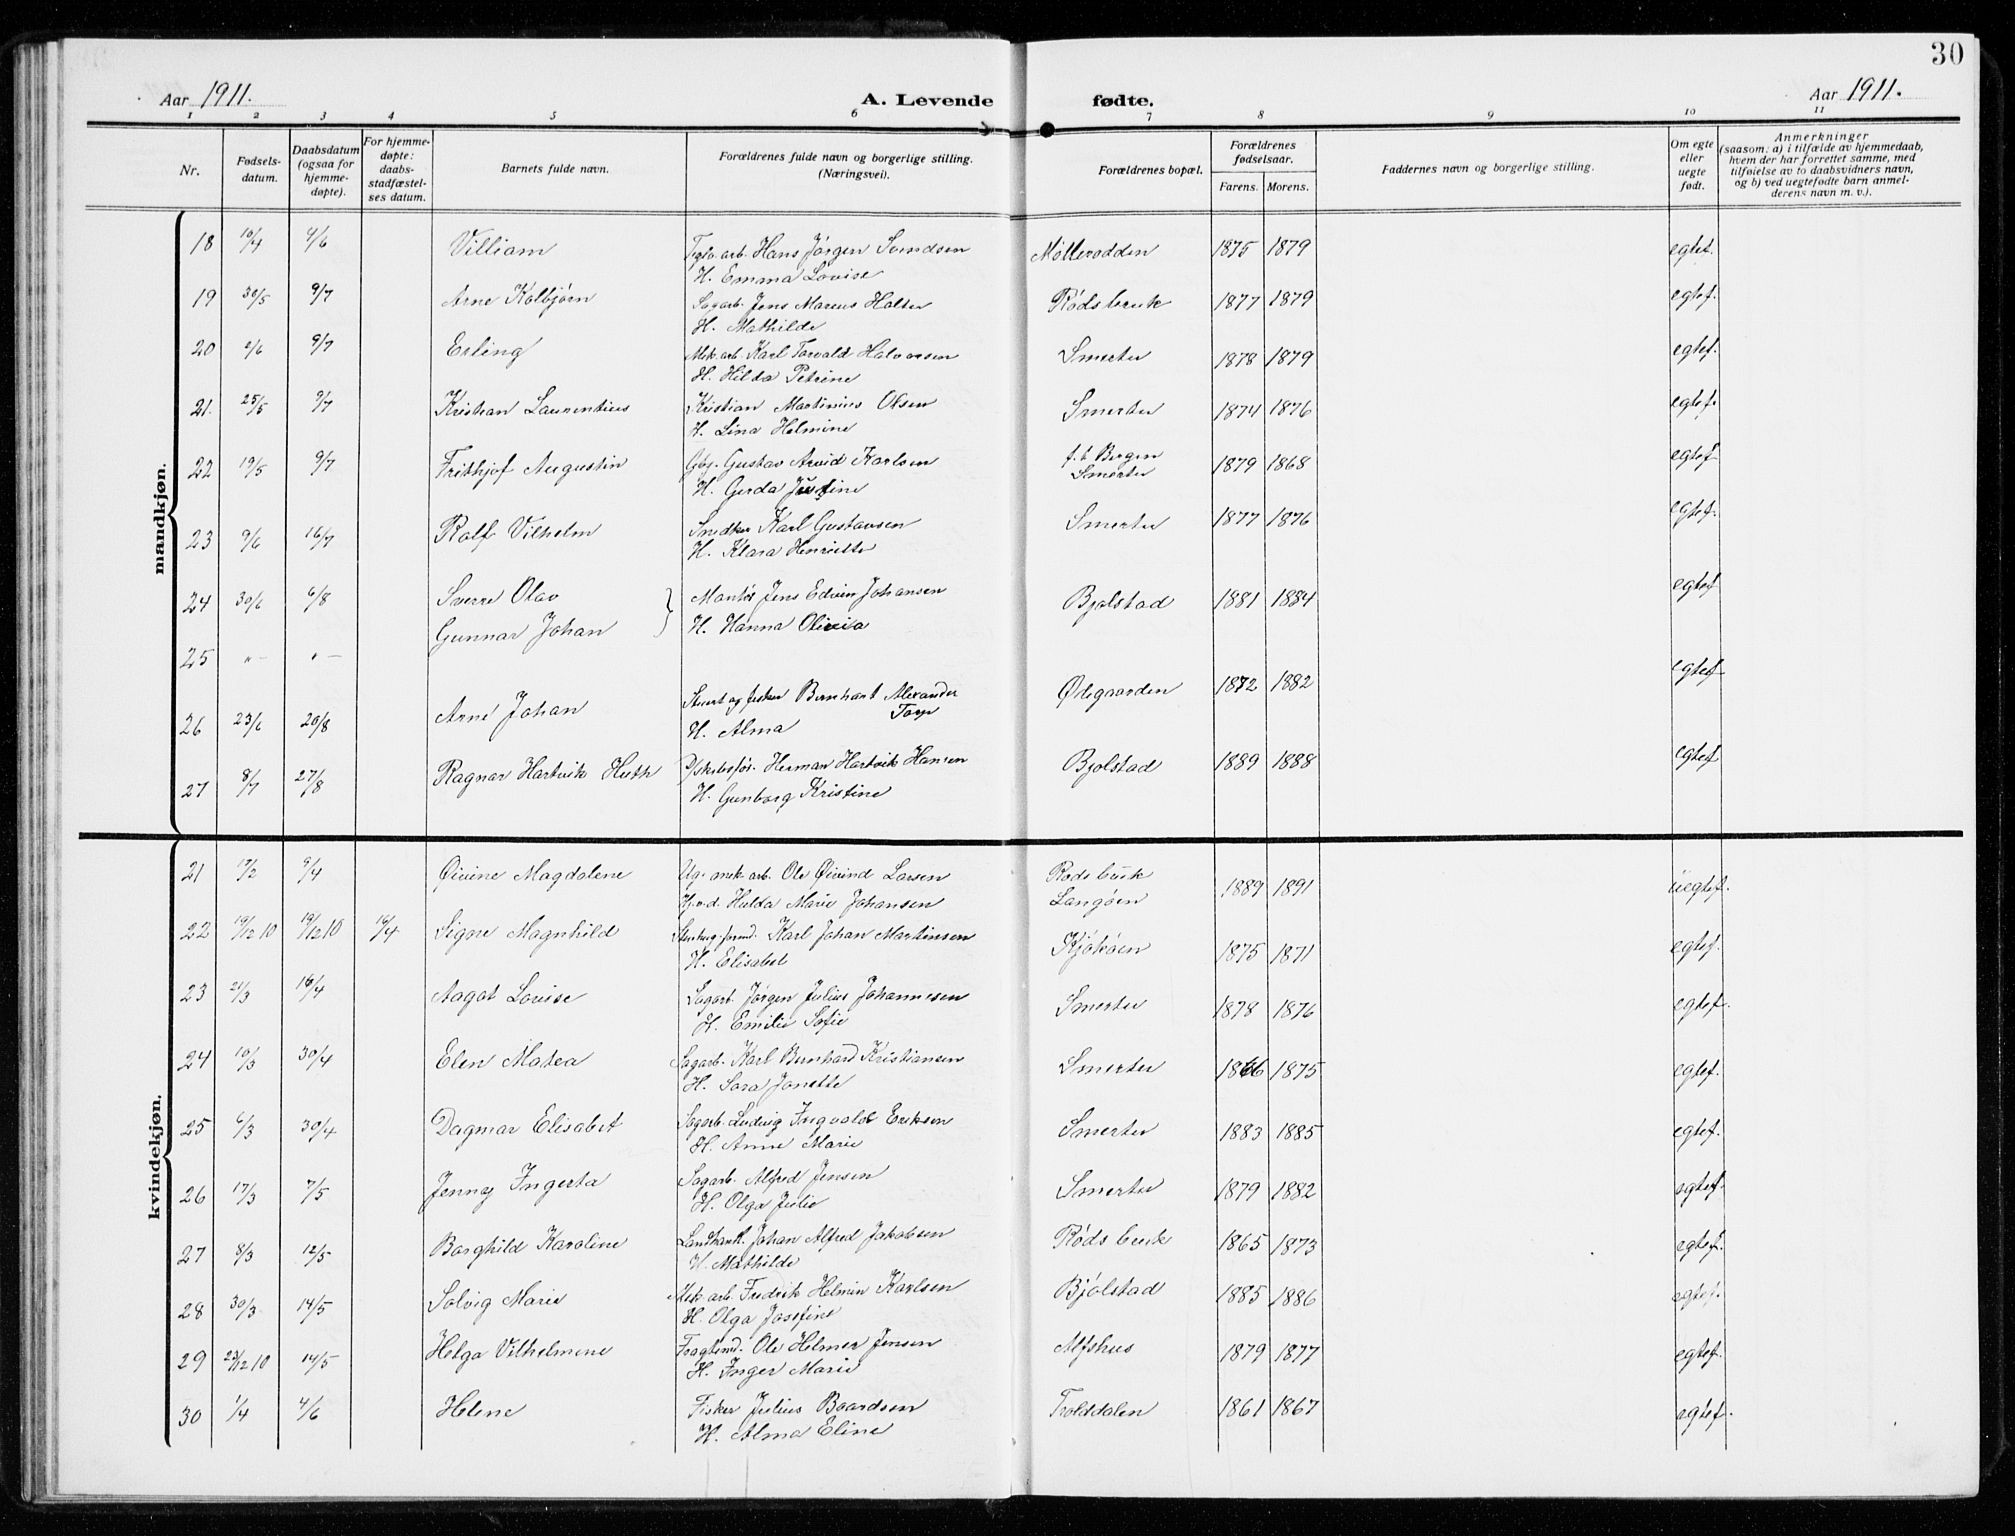 30
Aar 1911. A. Levende fødte. Aar 1911.
1 2 3 4 5 6 7 8 9 10 11
Nr. Fødsels-datum. Daabsdatum (ogsaa for hjemme-døpte). For hjemme-døpte: daabs-stadfæstel-ses datum. Barnets fulde navn. Forældrenes fulde navn og borgerlige stilling. (Næringsvei). Forældrenes bopæl. Forældrenes fødselsaar. Farens. Morens. Faddernes navn og borgerlige stilling. Om egte eller uegte født. Anmerkninger (saasom: a) i tilfælde av hjemmedaab, hvem der har forrettet samme, med tilføielse av to daabsvidners navn, og b) ved uegtefødte barn anmel-derens navn m. v.).
mandkjøn.
18 10/4 4/6 Villiam Teglv.arb. Hans Jørgen Svendsen Møllerodden 1875 1879 egtef.
H. Emma Lovise
19 30/5 9/7 Arne Kolbjørn Sagarb. Jens Marius Halter Røds bruk 1877 1879 egtef.
H. Mathilde
20 2/6 9/7 Erling Mek.arb. Karl Torvald Halvorsen Smerter 1878 1879 egtef.
H. Hilda Petrine
21. 25/5 9/7 Kristian Laurentius Kristian Martinius Olsen Smerter 1874 1876 egtef.
H. Lina Helmine
22 19/5 9/7 Frithjof Augustin Gbg. Gustav Arvid Karlsen f.t Bergen 1879 1868 egtef
H. Gerda Justine Smerter
23 9/6 16/7 Rolf Vilhelm Snedker Karl Gustavsen Smerter 1877 1876 egtef.
H. Klara Henriette
24 30/6 6/8 Sverre Olav } Montør Jens Edvin Johansen Bjølstad 1881 1884 egtef
Gunnar Johan H. Hanna Olivia
25 "— "—
26 23/6 20/8 Arne Johan Stuert og fisker Bernhart Alexander Torp Ødegaarden 1872 1882 egtef
H. Alma
27 8/7 27/8 Ragnar Hartvik Huth Herman Hartvik Hansen Bjølstad 1889 1888 egtef
H. Gunborg Kristine
kvindekjøn.
21 17/2 9/4 Øivine Magdalene Ug. mek arb. Ole Øivind Larsen Røds bruk 1889 1891 uegtef.
Hulda Marie Johansen Langøen
22 19/12 10 19/12 10 16/4 Signe Magnhild Karl Johan Martinsen Kjøkøen 1875 1871 egtef.
H. Elisabet
23 21/3 16/4 Aagot Lovise Sagarb. Jørgen Julius Johannesen Smerter 1878 1876 egtef.
H. Emilie Sofie
24 10/3 30/4 Elen Matea Sagarb. Karl Bernhard Kristiansen Smerter 1866 1875 egtef.
H. Sara Janette
25 6/3 30/4 Dagmar Elisabet Sagarb. Ludvig Ingvald Eriksen Smerter 1883 1885 egtef.
H. Anne Marie
26 17/3 7/5 Jenny Ingerta Sagarb. Alfred Jensen Smerter 1879 1882 egtef.
H. Olga Julie
27 8/3 12/5 Borghild Karoline Landhandl. Johan Alfred Jakobsen Røds bruk 1865 1873 egtef.
H. Mathilde
28 30/3 14/5 Solvig Marie Mek arb. Fredrik Helmin Karlsen Bjølstad 1885 1886 egtef.
H. Olga Josefine
29 23/12 10 14/5 Helga Vilhelmine Ole Helmer Jensen Alshus 1879 1877 egtef.
H. Inger Marie
30 1/4 4/6 Helene Fisker Julius Baardsen Trolddalen 1861 1867 egtef.
H. Alma Eline